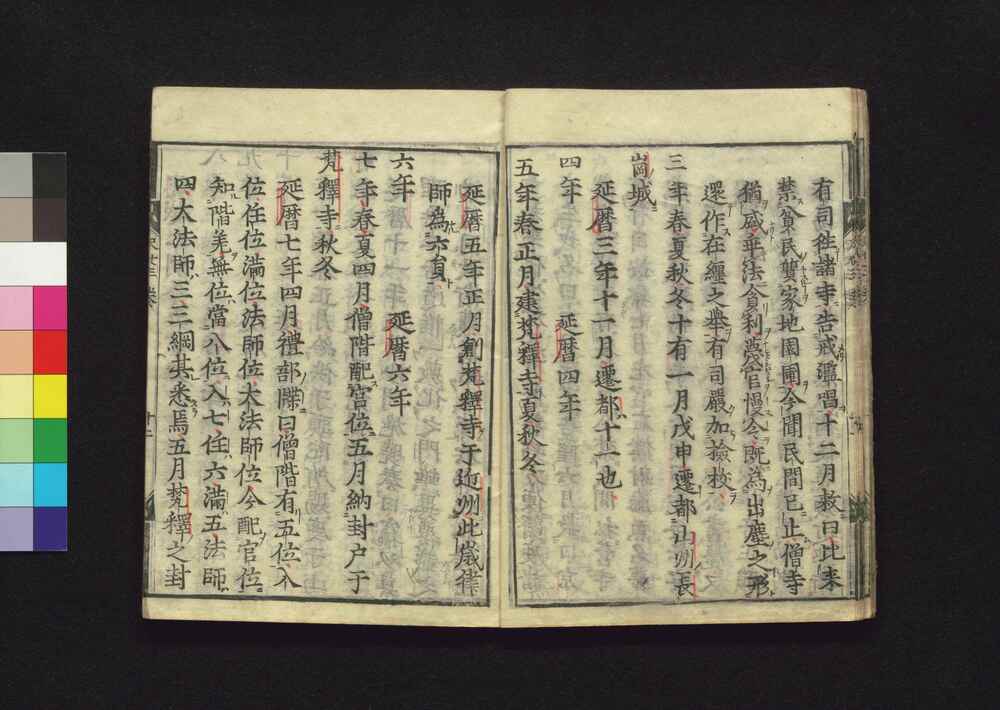 有司往諸寺告戒濫唱十二月救曰比来
禁貧民質家地園圃今聞民間已止僧寺
猶盛並法貪利憂官慢令既為出塵之形
還作在纏之舉有司嚴加撿挍
三年春夏秋冬十有一月戊申遷都山州長
崗城
延曆三年十一月遷都十一也
四年 延曆四年
五年春正月建梵釋寺夏秋冬
延曆五年正月創梵釋寺于近州此歳律
師為六員
六年 延曆六年
七年春夏四月僧階配官位五月納封户于
梵釋寺秋冬
延曆七年四月禮部牒曰僧階有五位入
位住位滿位法師位大法師位今配官位
知階羌無位當八位入七住六滿五法師
四大法師三三綱其悉焉五月梵釋之封